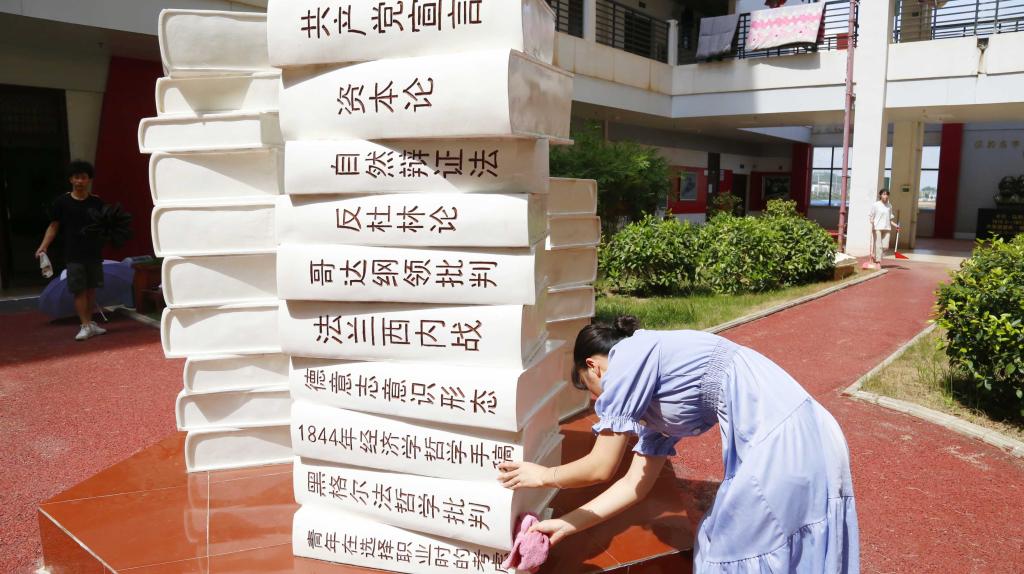 共产党宣言
资本论
自然辩证法
反杜林论
哥达纲领批判
法兰西内战
德意志意识形态
1844年经济学哲学手稿
黑格尔法哲学批判
青年在选择职业时的考虑